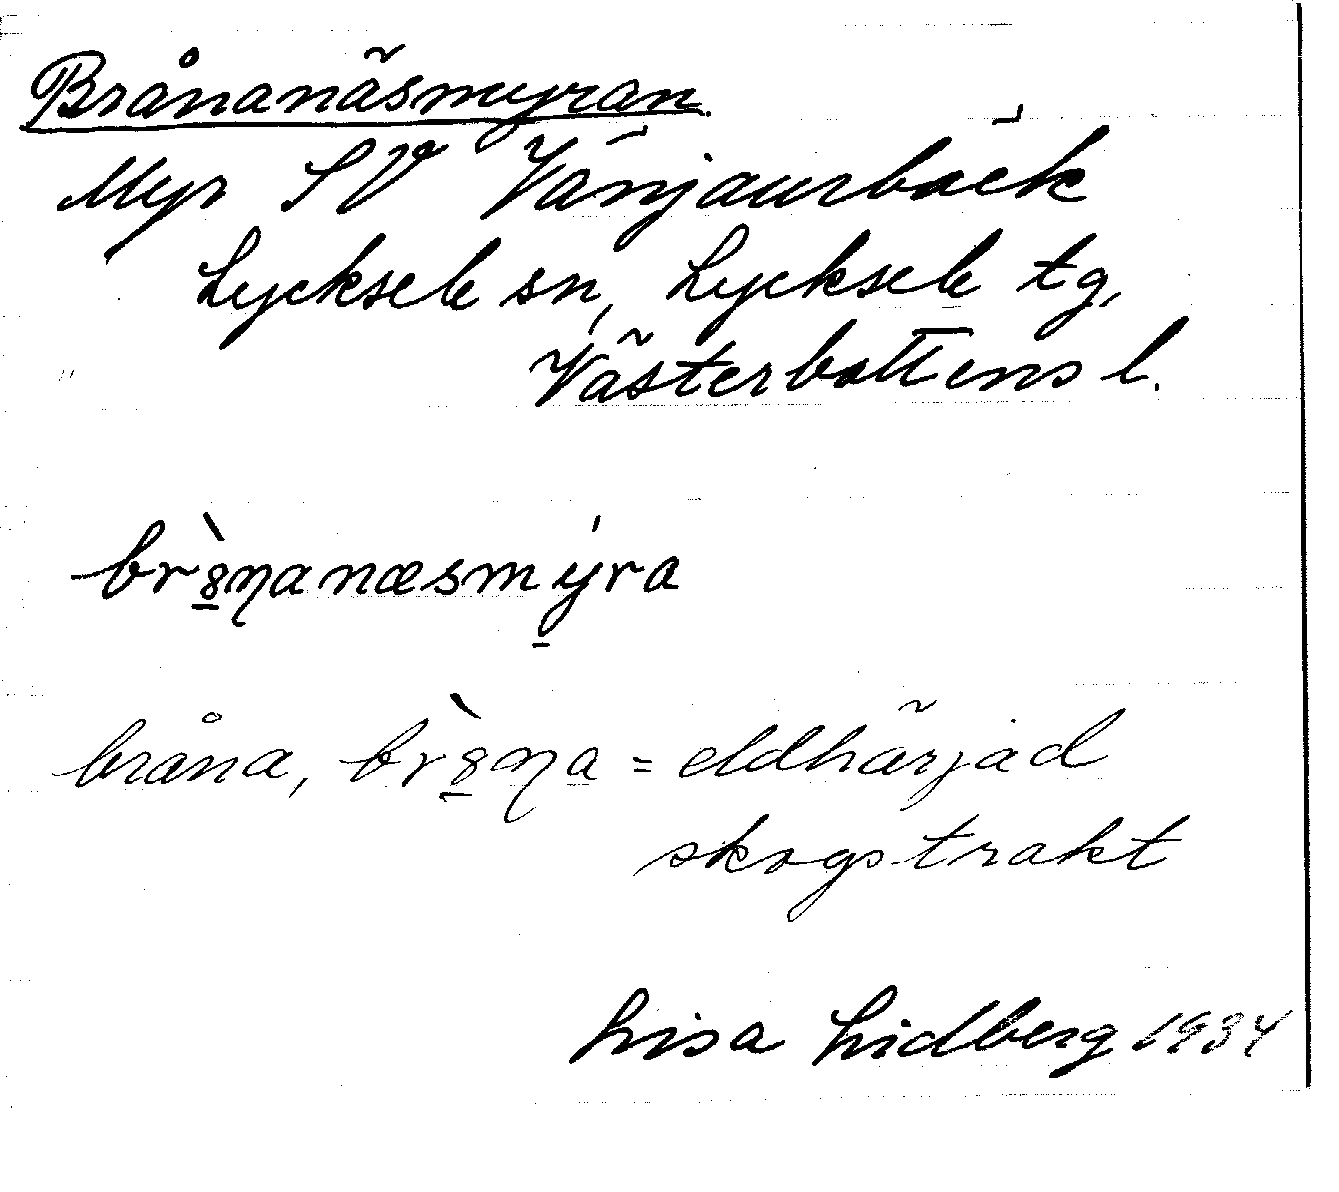 Brånanäsmyran
Myr SV Vänjaurbäck
Lycksele sn, Lycksele tg,
Västerbottens l.
br8̲̀ŋanæsmý̲ra
bråna, br8̲̀ŋa̲ = eldhärjad
skogstrakt
Lisa Lidberg 1934